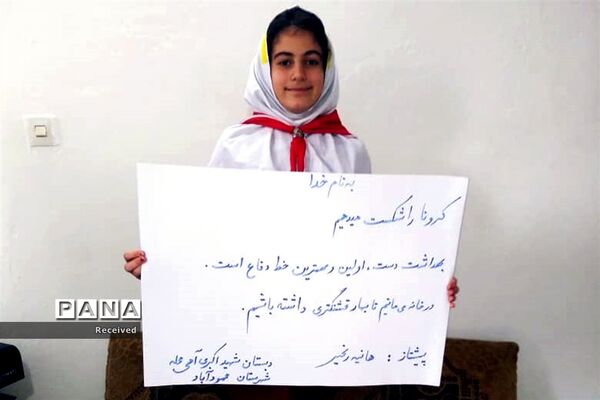 به نام خدا
کرونا را شکست میدهیم
بهداشت دست، اولین و مهمترین خط دفاع است.
در خانه می مانیم تا بهار قشنگتری داشته باشیم.
پیشتاز : هانیه
دبستان شهید اکبری آهی محله
شهرستان محمودآباد
PANA
Received